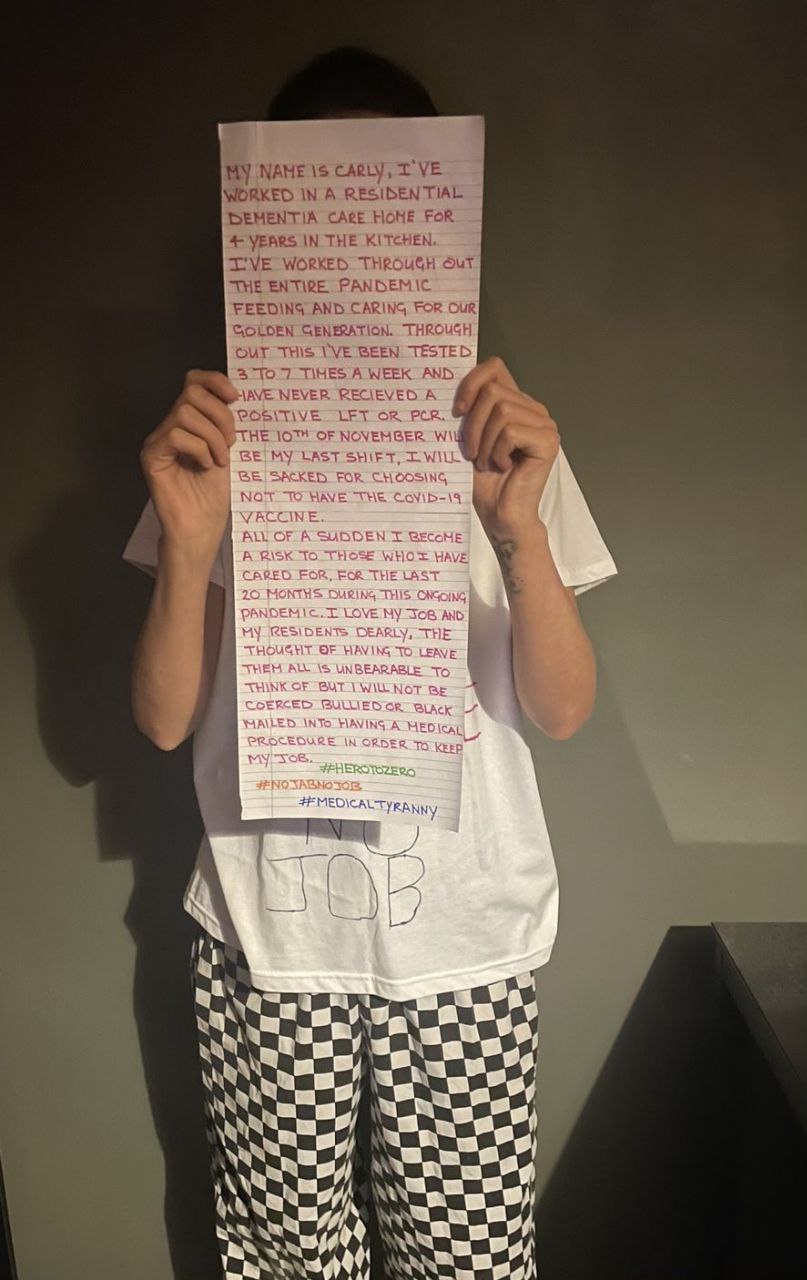 MY NAME IS CARLY, I'VE
WORKED IN A RESIDENTIAL
DEMENTIA CARE HOME FOR
4 YEARS IN THE KITCHEN.
I'VE WORKED THROUGH OUT
THE ENTIRE PANDEMIC
FEEDING AND CARING FOR OUR
GOLDEN GENERATION. THROUGH
OUT THIS I'VE BEEN TESTED
3 TO 7 TIMES A WEEK AND
HAVE NEVER RECIEVED A
POSITIVE LFT OR PCR.
THE 10TH OF NOVEMBER WILL
BE MY LAST SHIFT, I WILL
BE SACKED FOR CHOOSING
NOT TO HAVE THE COVID-19
VACCINE.
ALL OF A SUDDEN I BECOME
A RISK TO THOSE WHO I HAVE
CARED FOR, FOR THE LAST
20 MONTHS DURING THIS ONGOING
PANDEMIC. I LOVE MY JOB AND
MY RESIDENTS DEARLY, THE
THOUGHT OF HAVING TO LEAVE
THEM ALL IS UNBEARABLE TO
THINK OF BUT I WILL NOT BE
COERCED BULLIED OR BLACK
MAILED INTO HAVING A MEDICAL
PROCEDURE IN ORDER TO KEEP
MY JOB.
#HEROTOZERO
#NOJABNOJOB
#MEDICALTYRANNY
NO
JOB